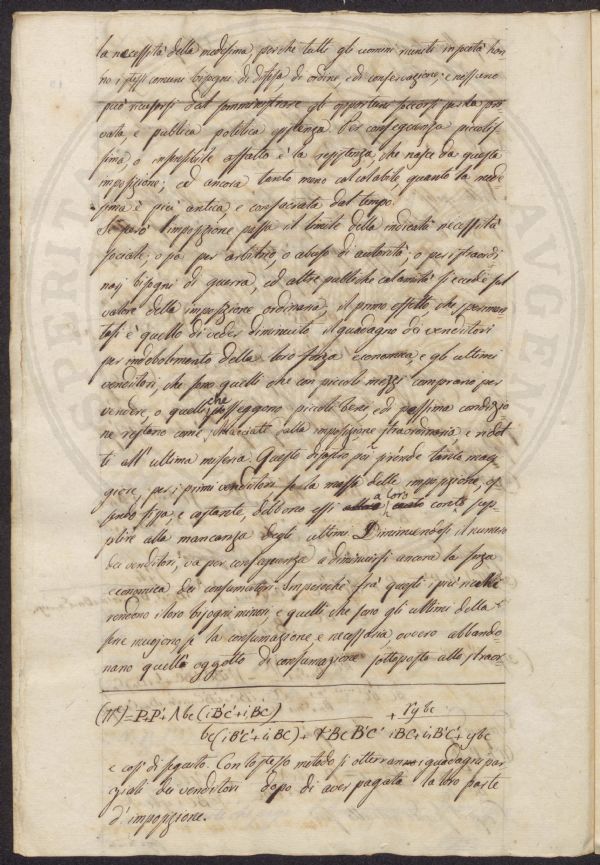 la necessità della medesima perche tutti gli uomini riuniti in società han
no i stessi comuni bisogni di difesa, di ordine, e di conservazione; e nessuno
può ricusarsi dal somministrare gli opportuni soccorsi per la pri
vata e publica politica esistenza. Per conseguenza piccolis
sima, o insensibile affatto è la resistenza, che nasce da questa
imposizione; ed ancora tanto meno calcolabile, quanto la mede
sima è più antica e consacrata dal tempo.
Se però l'imposizione passa il limite della indicata necessità
sociale; o sia per arbitrio, o abuso di autorità; o per straordi
narj bisogni di guerra, ed altre publiche calamità si eccede sul
valore della imposizione ordinaria, il primo effetto, che
è quello di veder diminuito il guadagno dei venditori
per indebolimento della loro forza economica e gli ultimi
venditori, che sono quelli che con piccoli mezzi comprano per
vendere, o quelli che posseggono piccoli beni ed di pessima condizio
ne restano come schiacciati dalla imposizione straordinaria, e ridot
ti all'ultima miseria. Questo disastro poi si rende tanto mag
giore, per i primi venditori se la massa delle imposizione, es
sendo fissa, e costante, debbono essi a loro conto sup
plire alla mancanza degli ultimi. Diminuendosi il numero
dei venditori, va per conseguenza a diminuirsi ancora la forza
economica dei consumatori. Imperochè frà questi i più ricchi
rendono i loro bisogni minori, e quelli che sono gli ultimi della
serie muojono se la consumazione è necessaria ovvero abbando
nano quell'oggetto di consumazione sottoposto allo straor
(π') = P.P'. Λbc (iB'C' + i,BC) + γybc
bc(iB'C' + i,BC) + γBcB'C' iBC + i,B'C' + ybc
e così di seguito. Con lo stesso metodo si otterranno i guadagni par
ziali dei venditori dopo di aver pagata la loro parte
d'imposizione.